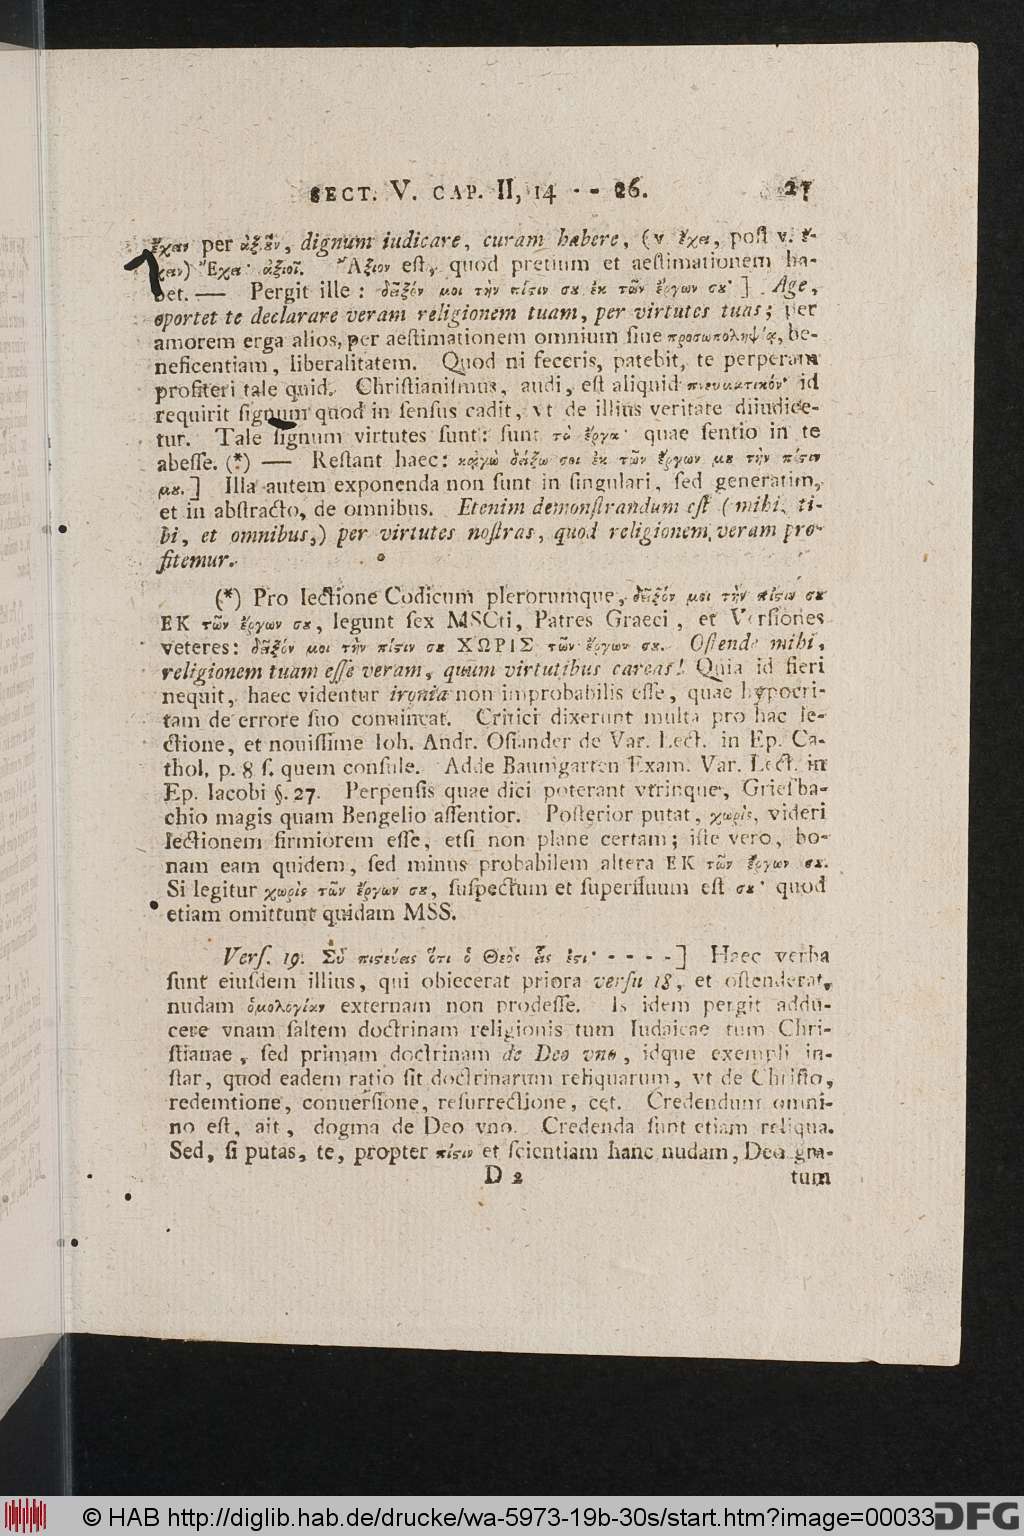 SECT. V. CAP. II, 14 - - 26. 27
ἔχειν per ἀξιοῦν, dignum iudicare, curam habere, (v. ἔχει, post v. ἔ-
χειν) Ἔχει· ἀξιοῖ. Ἄξιον est, quod pretium et aestimationem ha-
bet. — Pergit ille: δεῖξόν μοι τὴν πίστιν σου ἐκ τῶν ἔργων σου·] Age,
oportet te declarare veram religionem tuam, per virtutes tuas; per
amorem erga alios, per aestimationem omnium sine προσωποληψίᾳ, be-
neficentiam, liberalitatem. Quod ni feceris, patebit, te perperam
profiteri tale quid. Christianismus, audi, est aliquid πνευματικόν· id
requirit signum quod in sensus cadit, vt de illius veritate diiudice-
tur. Tale signum virtutes sunt: sunt τὰ ἔργα· quae sentio in te
abesse. (*) — Restant haec: κᾀγὼ δείξω σοι ἐκ τῶν ἔργων μου τὴν πίστιν
μου.] Illa autem exponenda non sunt in singulari, sed generatim,
et in abstracto, de omnibus. Etenim demonstrandum est (mihi, ti-
bi, et omnibus,) per virtutes nostras, quod religionem veram pro-
fitemur.
(*) Pro lectione Codicum plerorumque, δεῖξόν μοι τὴν πίστιν σου
ΕΚ τῶν ἔργων σου, legunt sex MSCti, Patres Graeci, et Versiones
veteres: δεῖξόν μοι τὴν πίστιν σου ΧΩΡΙΣ τῶν ἔργων σου. Ostende mihi,
religionem tuam esse veram, quum virtutibus careas! Quia id fieri
nequit, haec videntur ironia non improbabilis esse, quae hypocri-
tam de errore suo conuincat. Critici dixerunt multa pro hac le-
ctione, et nouissime Ioh. Andr. Osiander de Var. Lect. in Ep. Ca-
thol. p. 8 s. quem consule. Adde Baumgarten Exam. Var. Lect. in
Ep. Iacobi §. 27. Perpensis quae dici poterant vtrinque, Griesba-
chio magis quam Bengelio assentior. Posterior putat, χωρὶς, videri
lectionem firmiorem esse, etsi non plane certam; iste vero, bo-
nam eam quidem, sed minus probabilem altera ΕΚ τῶν ἔργων σου.
Si legitur χωρὶς τῶν ἔργων σου, suspectum et superfluum est σου· quod
etiam omittunt quidam MSS.
Vers. 19. Σὺ πιστεύεις ὅτι ὁ Θεὸς εἷς ἐστι· - - - -] Haec verba
sunt eiusdem illius, qui obiecerat priora versu 18, et ostenderat,
nudam ὁμολογίαν externam non prodesse. Is idem pergit addu-
cere vnam saltem doctrinam religionis tum Iudaicae tum Chri-
stianae, sed primam doctrinam de Deo vno, idque exempli in-
star, quod eadem ratio sit doctrinarum reliquarum, vt de Christo,
redemtione, conuersione, resurrectione, cet. Credendum omni-
no est, ait, dogma de Deo vno. Credenda sunt etiam reliqua.
Sed, si putas, te, propter πίστιν et scientiam hanc nudam, Deo gra-
D 2 tum
© HAB http://diglib.hab.de/drucke/wa-5973-19b-30s/start.htm?image=00033
DFG